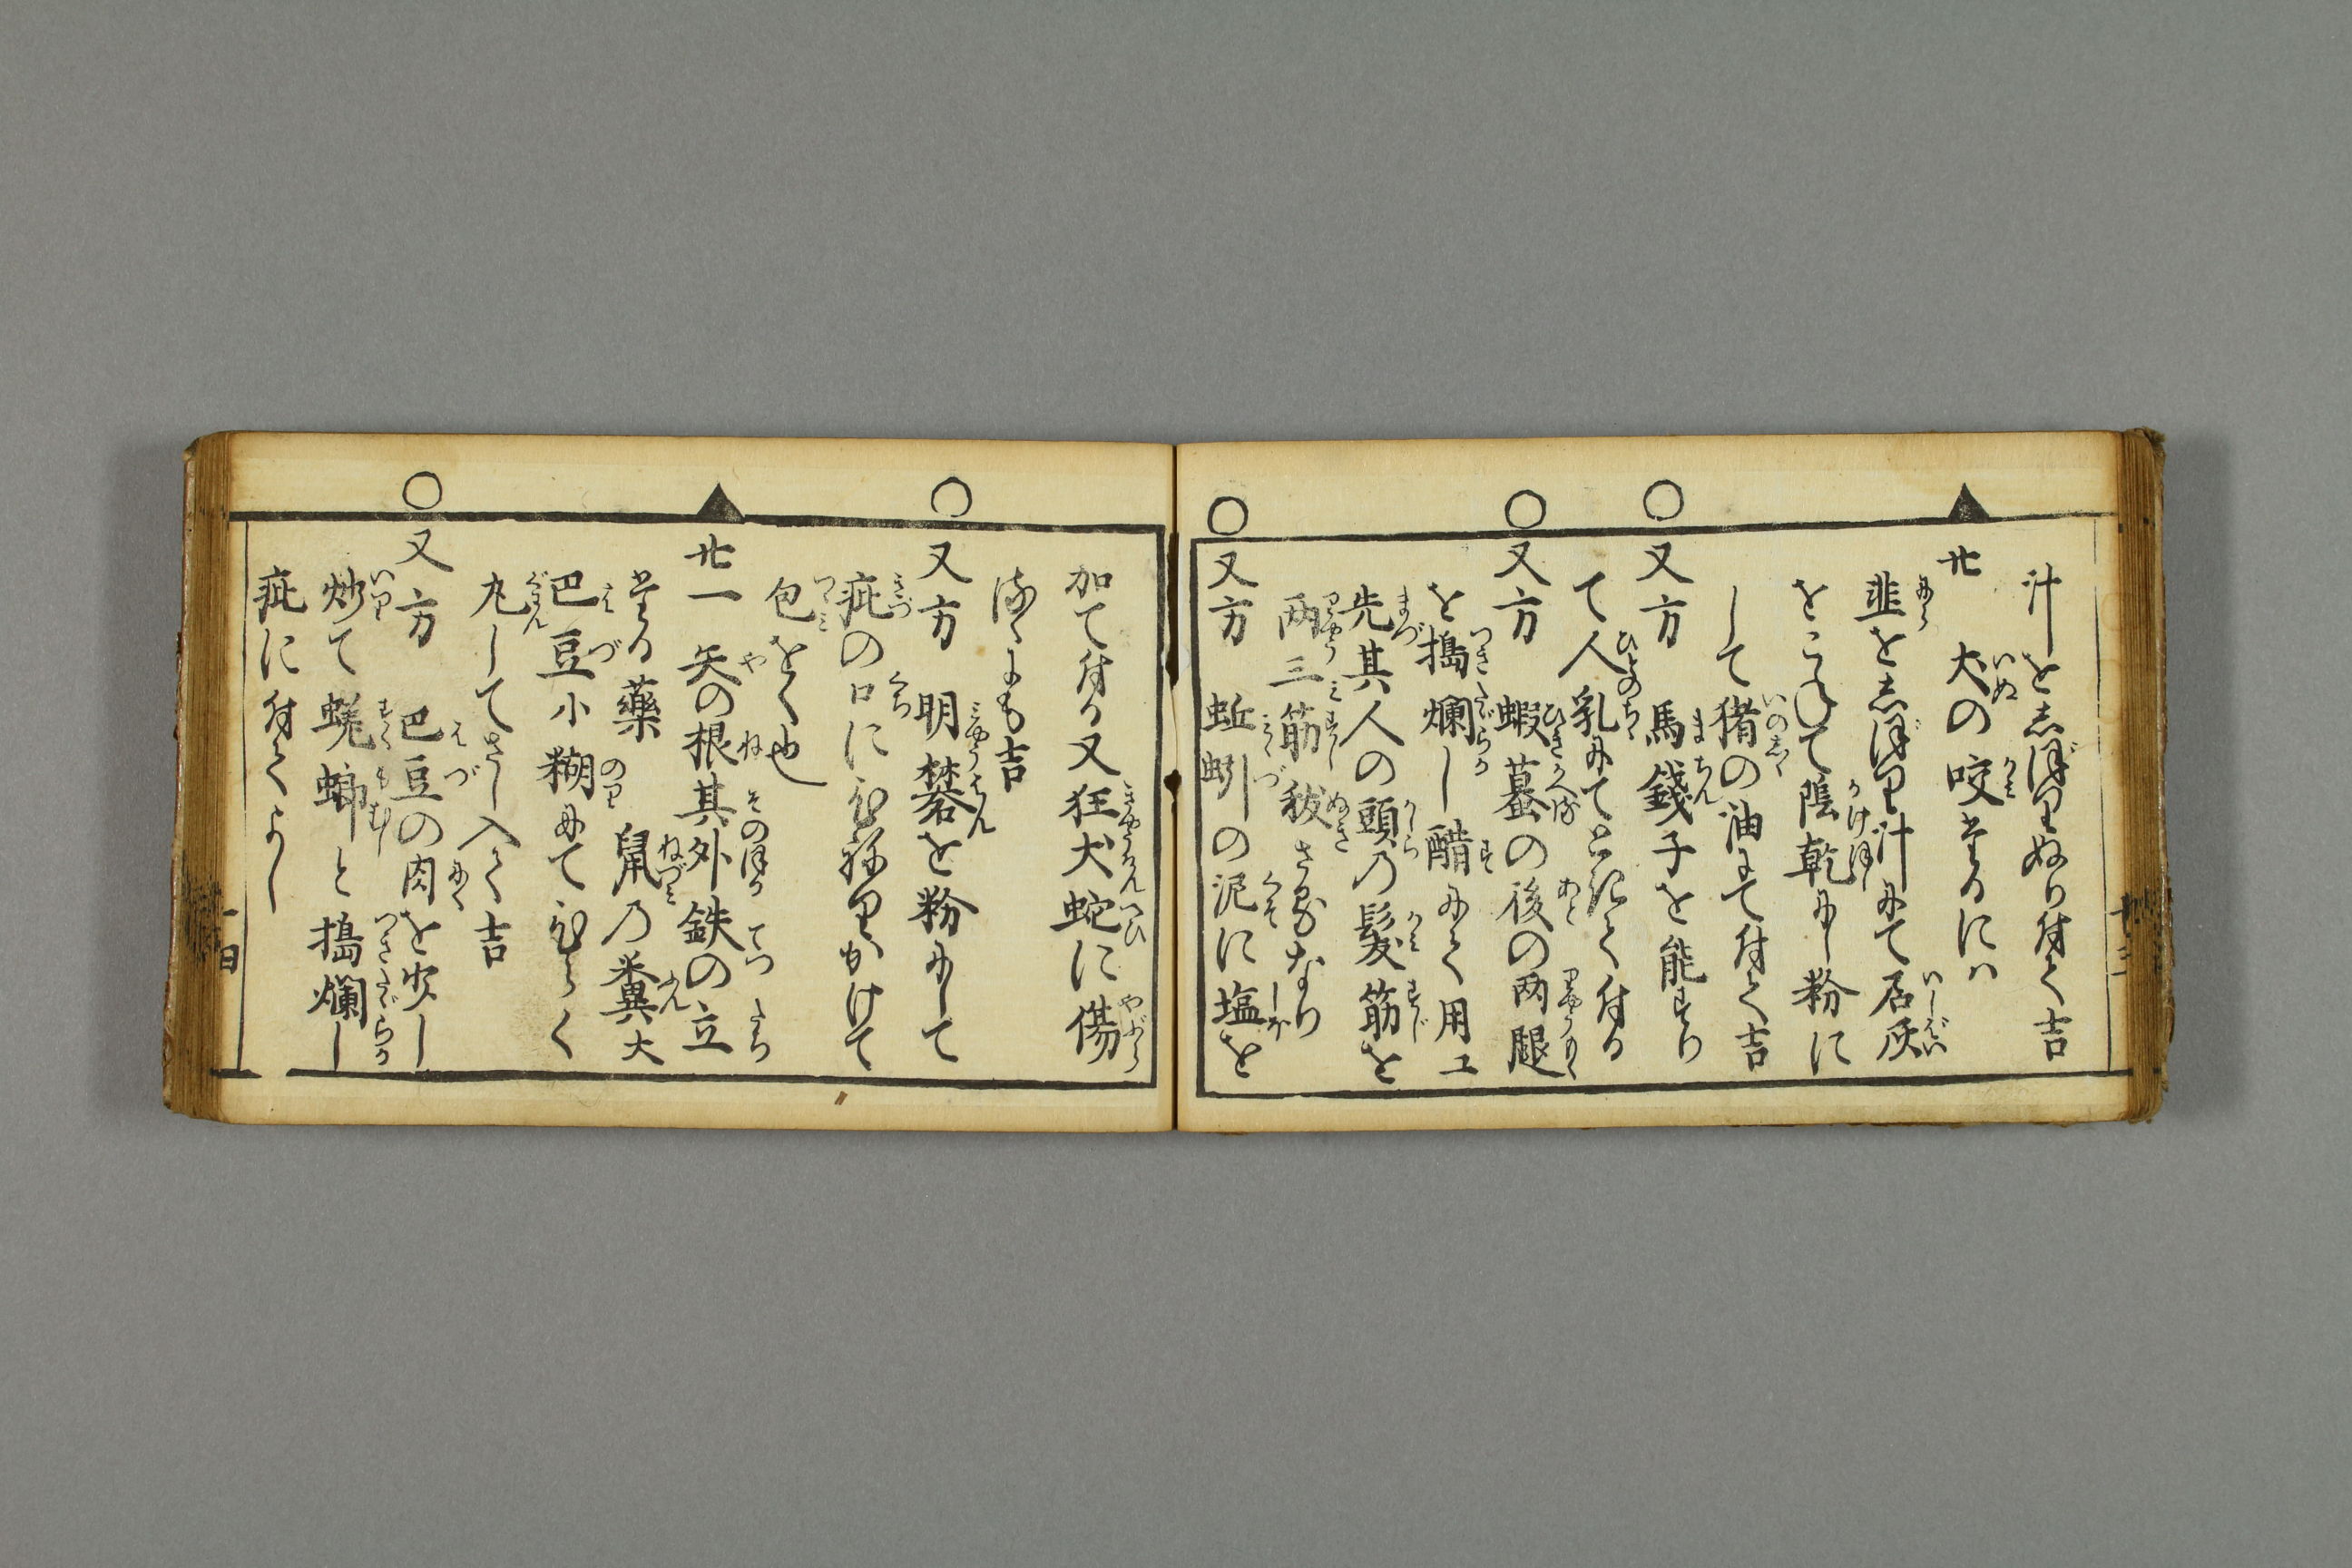 汁をしぼりぬり付て吉
廿 犬の咬たるにハ
韮をしぼり汁にて石灰
をこねて陰乾にし粉に
して猪の油にて付て吉
○又方 馬錢子を能すり
て人乳にてときて付る
○又方 蝦蟇の後の両腿
を搗爛し醋にて用ユ
先其人の頭の髪筋を
両三筋抜さるなり
○又方 蚯蚓の泥に塩を
加て付る又狂犬蛇に傷
るゝにも吉
○又方 明礬を粉にして
疵の口にひねりかけて
包をく也
廿一 矢の根其外鉄の立
たる藥 鼠の糞大
巴豆小糊にてひらく
丸してさし入て吉
○又方 巴豆の肉を少し
炒て蜣蜋と搗爛し
疵に付てよし